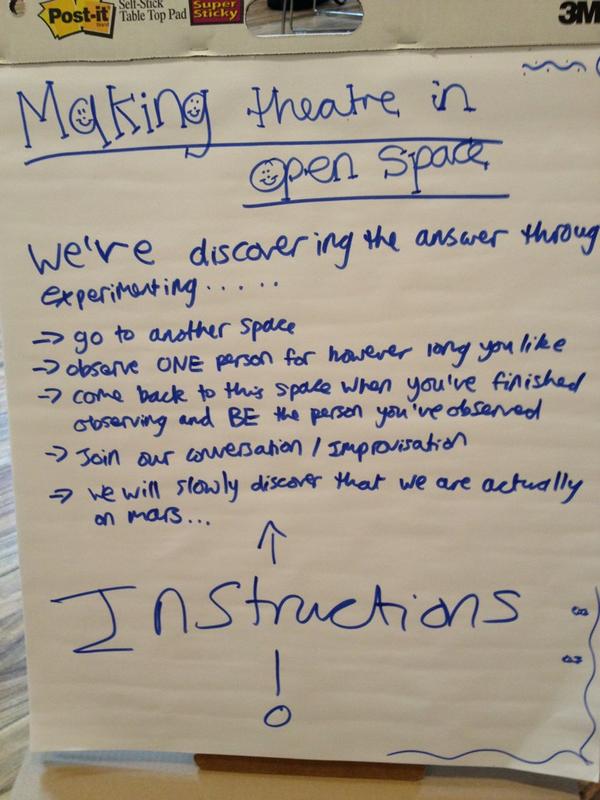 Post-it
Self-Stick
Table Top Pad
Super
Sticky
3M
Making theatre in
open space
We're discovering the answer throug
experimenting.....
→ go to another space
→ observe ONE person for however long you like
→ come back to this space when you've finished
observing and BE the person you've observed
→ Join our conversation / Improvisation
→ we will slowly discover that we are actually
on mars...
Instructions
!